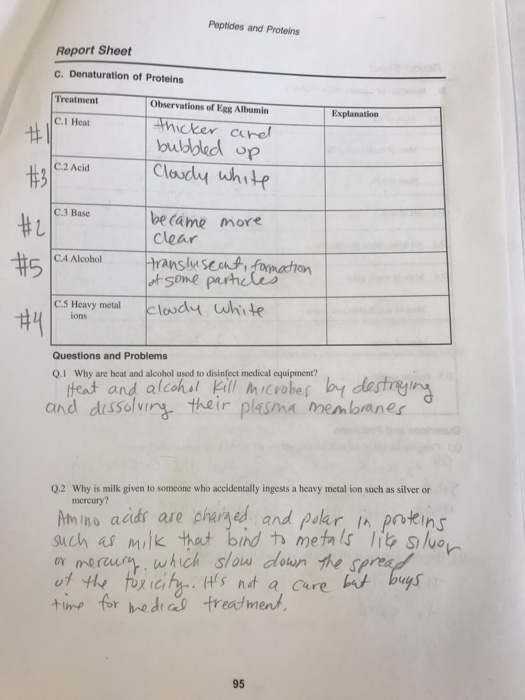 Peptides and Proteins
Report Sheet
C. Denaturation of Proteins
Treatment Observations of Egg Albumin Explanation
#1 C.1 Heat thicker and
bubbled up
#3 C.2 Acid Cloudy white
#2 C.3 Base became more
clear
#5 C.4 Alcohol transluscent, formation
of some particles
#4 C.5 Heavy metal cloudy white
ions
Questions and Problems
Q.1 Why are heat and alcohol used to disinfect medical equipment?
Heat and alcohol kill microbes by destroying
and dissolving their plasma membranes
Q.2 Why is milk given to someone who accidentally ingests a heavy metal ion such as silver or
mercury?
Amino acids are charged and polar in proteins
such as milk that bind to metals like silver
or mercury, which slow down the spread
of the toxicity. It's not a cure but buys
time for medical treatment.
95